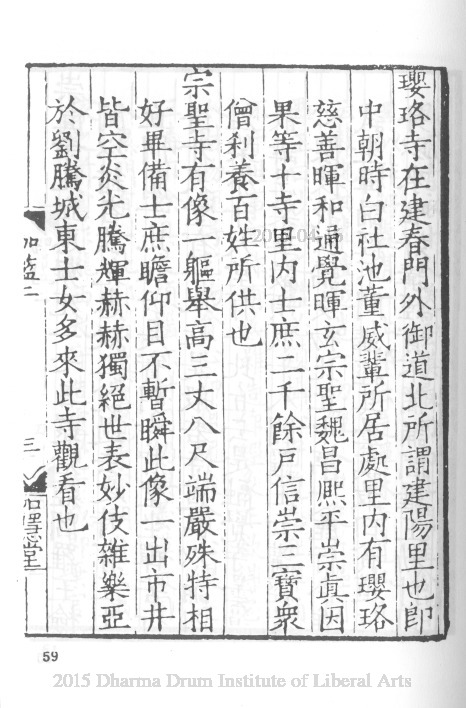 瓔珞寺在建春門外御道北所謂建陽里也卽
中朝時白社池董威輩所居處里内有瓔珞
慈善暉和通覺暉玄宗聖魏昌熈平崇眞因
果等十寺里内士庶二千餘戶信崇三寶衆
僧刹養百姓所供也
宗聖寺有像一軀舉高三丈八尺端嚴殊特相
好畢備士庶瞻仰目不暫瞬此像一出市井
皆空炎光騰輝赫赫獨絕世表妙伎雜樂亞
於劉騰城東士女多來此寺觀看也
伽藍二
三
如隱堂
59
2015 Dharma Drum Institute of Liberal Arts